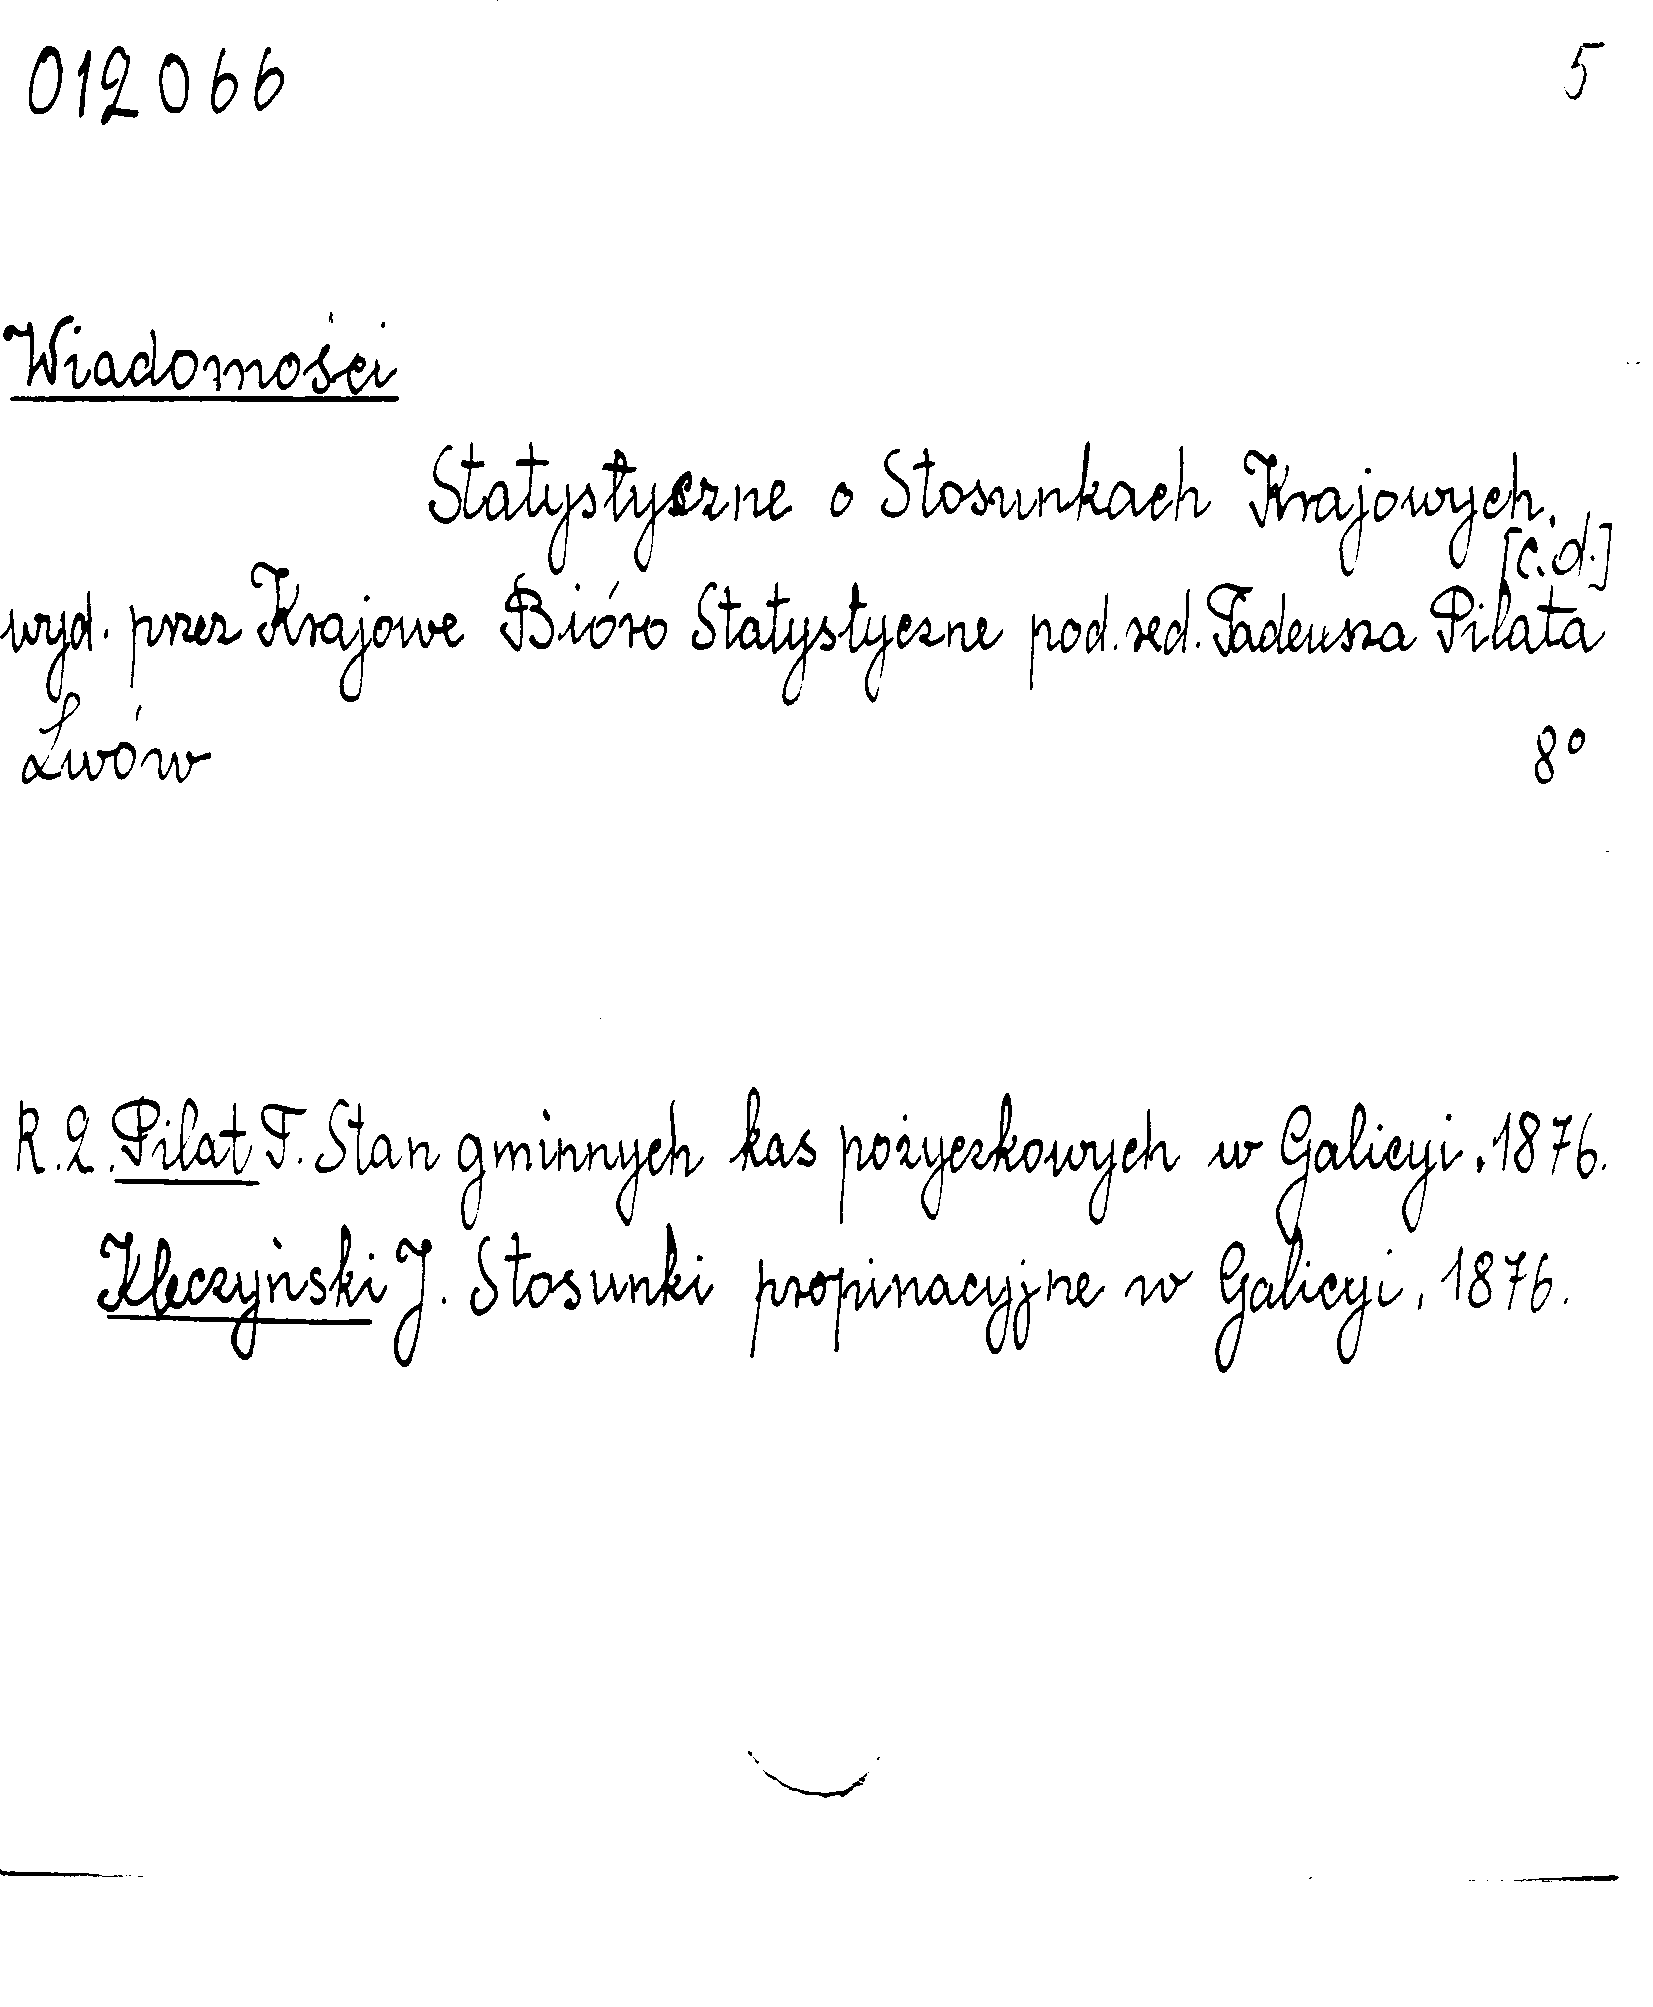 012066 5
Wiadomości
Statystyczne o Stosunkach Krajowych.
[c.d.]
wyd. przez Krajowe Bióro Statystyczne pod. red. Tadeusza Pilata
Lwów 8°
R.2. Pilat T. Stan gminnych kas pożyczkowych w Galicyi, 1876.
Kleczyński J. Stosunki propinacyjne w Galicyi, 1876.